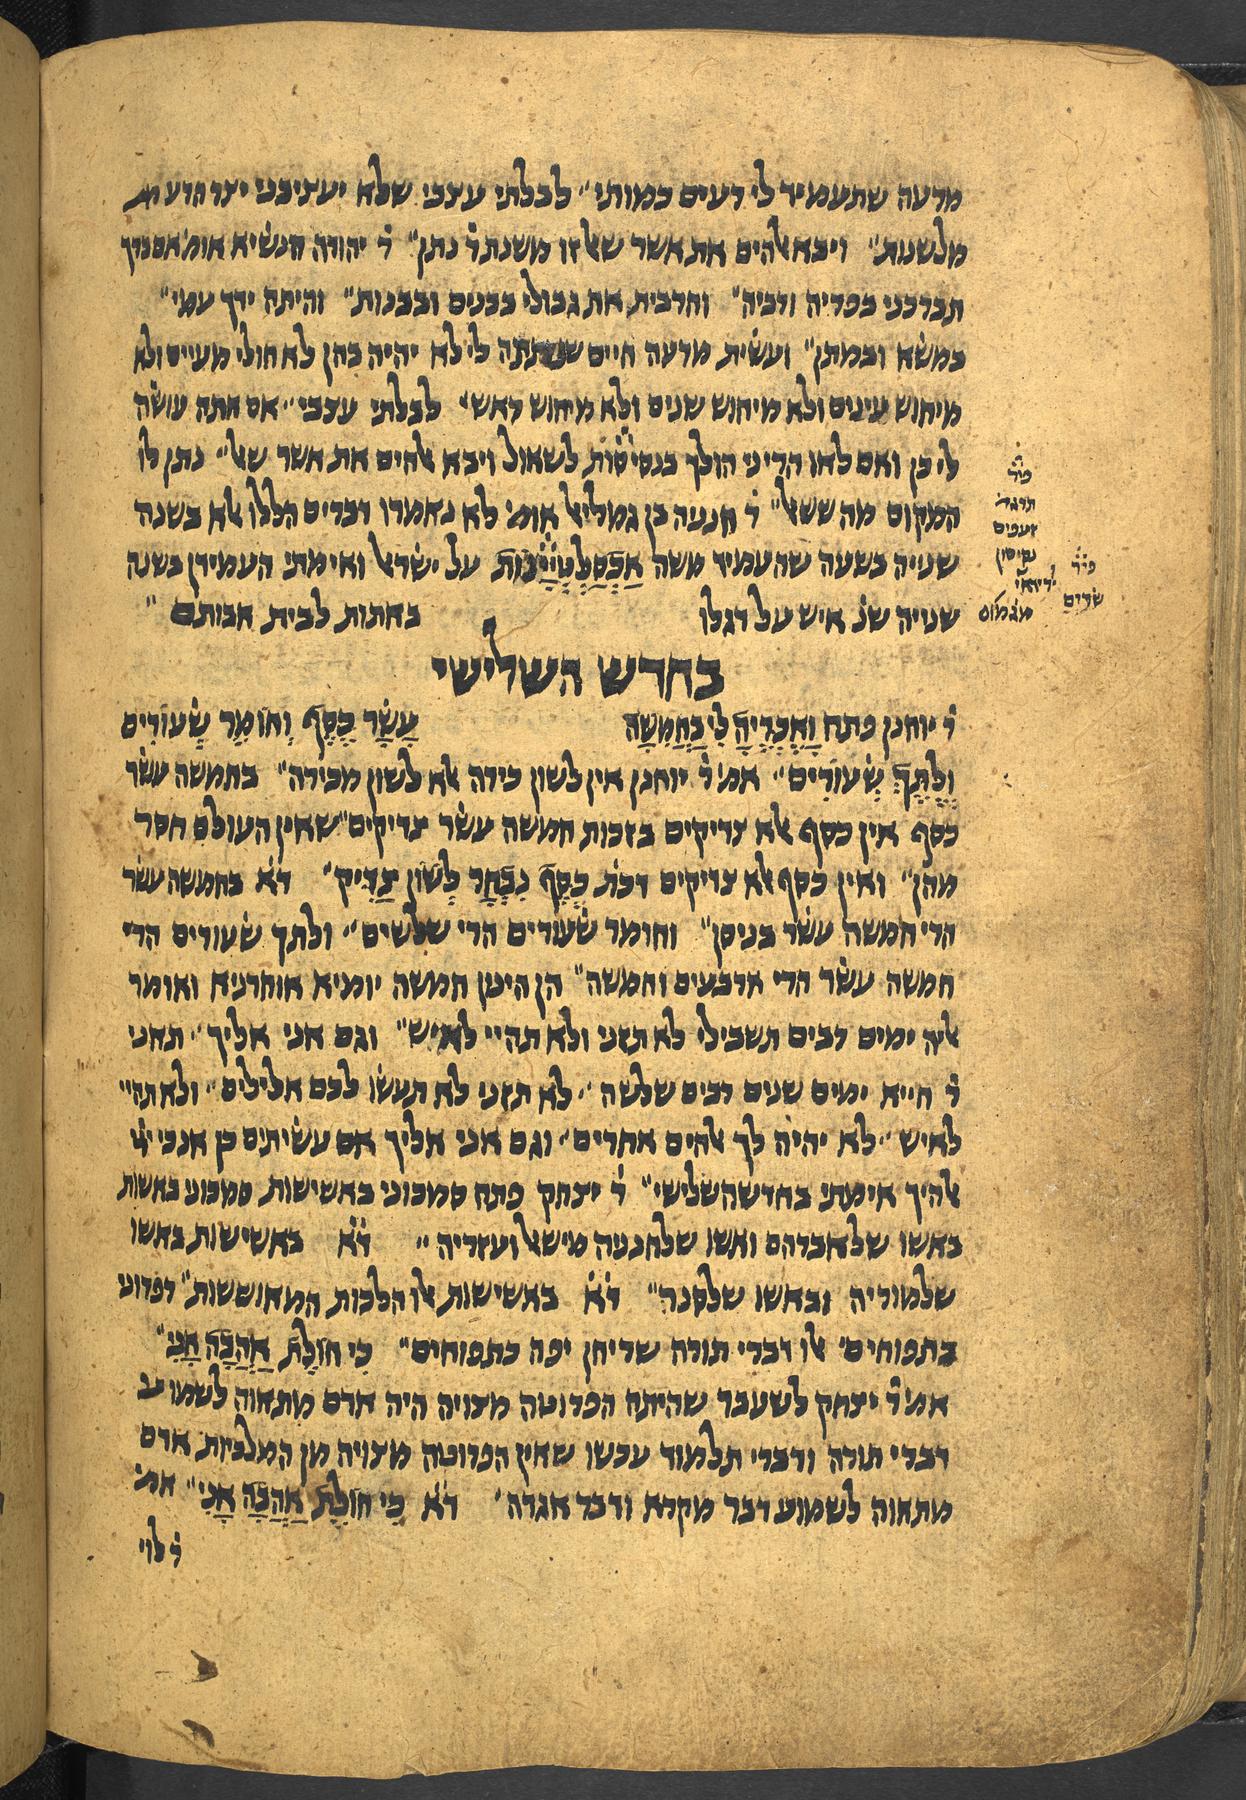 מרעה שתעמיד לי רעים כמותי״ לבלתי עצבי שלא יעציבני יצר הרע מ
מלשנות״ ויבא אלהים את אשר שאל זו משנת ר׳ נתן״ ר׳ יהודה הנשיא אומ׳ אם ברך
תברכני בפריה ורביה״ והרבית את גבולי בבנים ובבנות״ והיתה ידך עמי״
במשא ובמתן״ ועשית מרעה חיים שנתתה לי לא יהיה בהן לא חולי מעיים ולא
מיחוש עינים ולא מיחוש שנים ולא מיחוש ראש׳ לבלתי עצבי״ אם אתה עושה
לי כן ואם לאו הריני הולך בנסיסות לשאול ויבא אלהים את אשר שאל״ נתן לו
המקום מה ששאל״ ר׳ חנניה בן גמליאל אומ׳ לא נאמרו דברים הללו אלא בשנה
שנייה בשעה שהעמיד משה אבסלטייונות על ישראל ואימתי העמידן בשנה
שנויה שנ׳ איש על דגלו באתות לבית אבותם״
פיר׳
תרגו׳
זועפים
נסיסין
פיר׳
שרים
בחדש השלישי
ר׳ יוחנן פתח ואכריה לי בחמשה עשר כסף וחומר שעורים
ולתך שעורים״ אמ׳ ר׳ יוחנן אין לשון כירה אלא לשון מכירה״ בחמשה עשר
כסף אין כסף אלא צדיקים בזכות חמשה עשר צדיקים״ שאין העולם חסר
מהן״ ואין כסף אלא צדיקים דכת׳ כסף נבחר לשון צדיק״ דא׳ בחמשה עשר
הרי חמשה עשר בניסן״ וחומר שעורים הרי שלשים״ ולתך שעורים הרי
חמשה עשר הרי ארבעים וחמשה״ הן הינון חמשה יומיא אוחרניא ואומר
אליה ימים רבים תשבילי לא תזני ולא תהיי לאיש״ וגם אני אליך״ תאני
ר׳ חייא ימים שנים רבים שלשה״ לא תזני לא תעשו לכם אלילים״ ולא תהיי
לאיש״ לא יהיה לך אלהים אחרים״ וגם אני אליך אם עשיתים כן אנכי יי׳
אלהיך אימתי בחדש השלישי״ ר׳ יצחק פתח סמכוני באשישות סמכוני באשות
באשו של אברהם ואשו של חנניה מישאל ועזריה״ דא׳ באשישות באשו
של מוריה ובאשו של סנה״ דא׳ באשישות אלו הלכות המאוששות״ רפדוני
בתפוחים׳ אלו דברי תורה שריחן יפה כתפוחים״ כי חולת אהבה אני״
אמ׳ ר׳ יצחק לשעבר שהיתה הפרוטה מצויה היה אדם מתאוה לשמוע
דברי תורה ודברי תלמוד עכשו שאין הפרוטה מצויה מן המלכות אדם
מתאוה לשמוע דבר מקרא ודבר אגדה׳ דא׳ כי חולת אהבה אני״ אמ׳
ר׳ לוי